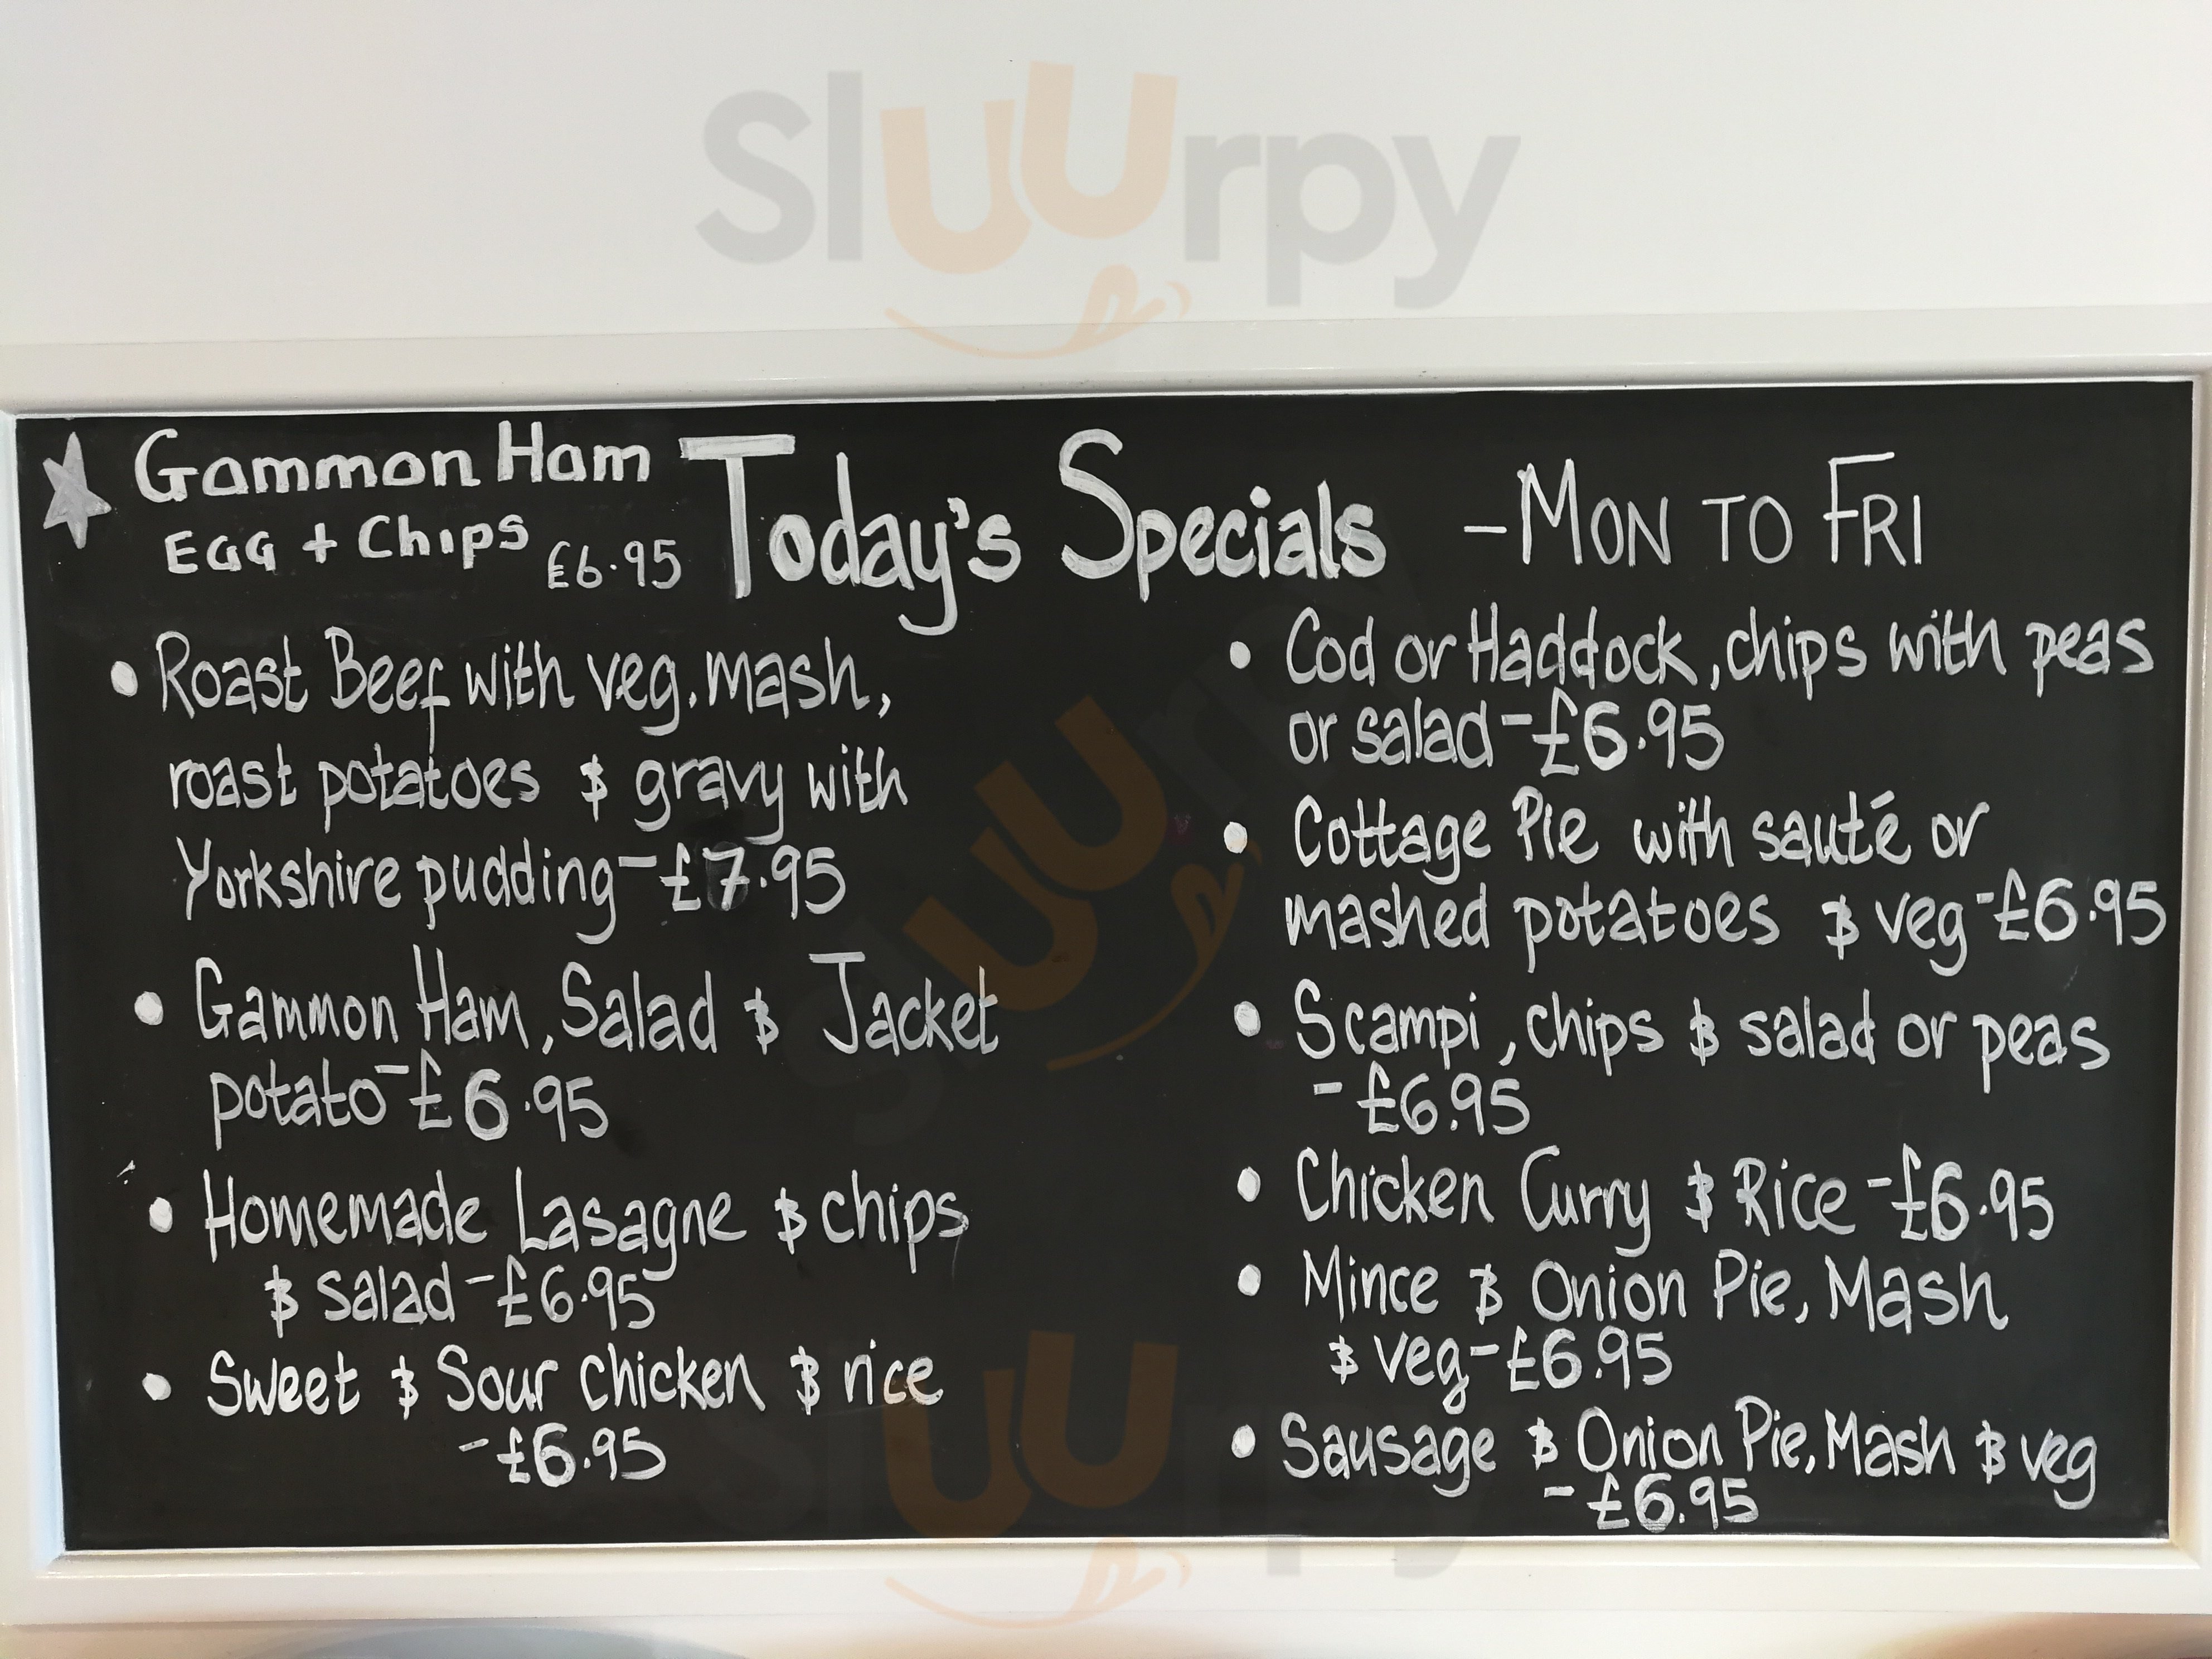 Sluurpy
Gammon Ham
EGG + Chips £6.95
Today's Specials - MON TO FRI
• Roast Beef with veg, mash,
roast potatoes & gravy with
Yorkshire pudding - £7.95
• Gammon Ham, Salad & Jacket
potato - £6.95
• Homemade Lasagne & chips
& salad - £6.95
• Sweet & Sour chicken & rice
- £6.95
• Cod or Haddock, chips with peas
or salad - £6.95
• Cottage Pie with sauté or
mashed potatoes & veg - £6.95
• Scampi, chips & salad or peas
- £6.95
• Chicken Curry & Rice - £6.95
• Mince & Onion Pie, Mash
& veg - £6.95
• Sausage & Onion Pie, Mash & veg
- £6.95
Sluurpy
Sluurpy